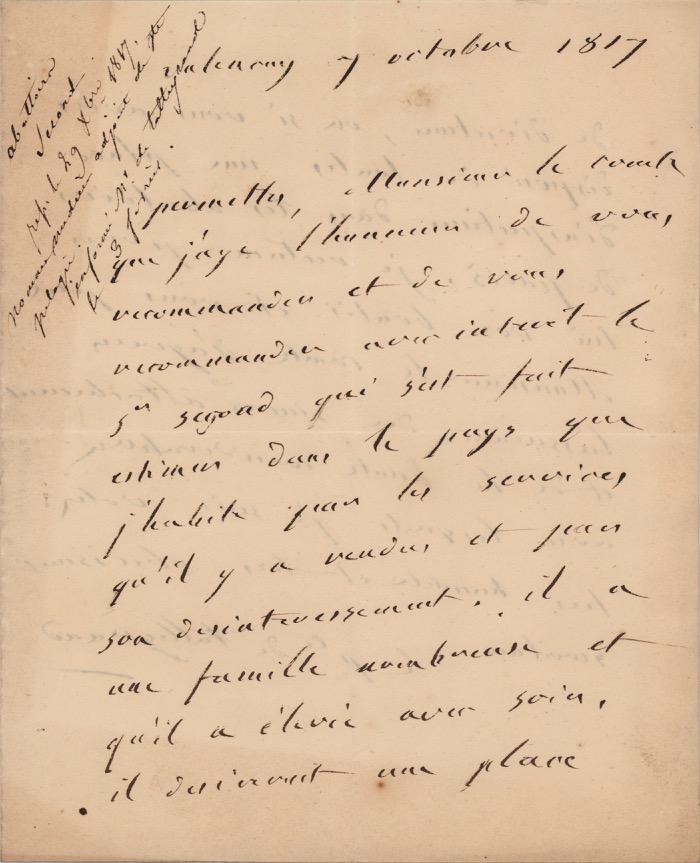 abattoirs
Second
rep. le 29 Xbre 1817.
informé Mr de talleyrand
le 3 février.
valencay 7 octobre 1817
permettes, Monsieur le comte
que j'aye l'honneur de vous
recommander et de vous
recommander avec interet le
sr segond qui s'est fait
estimer dans le pays que
j'habite par les services
qu'il y a rendus et par
son desinteressement. il a
une famille nombreuse et
qu'il a élevée avec soin,
il desireroit une place